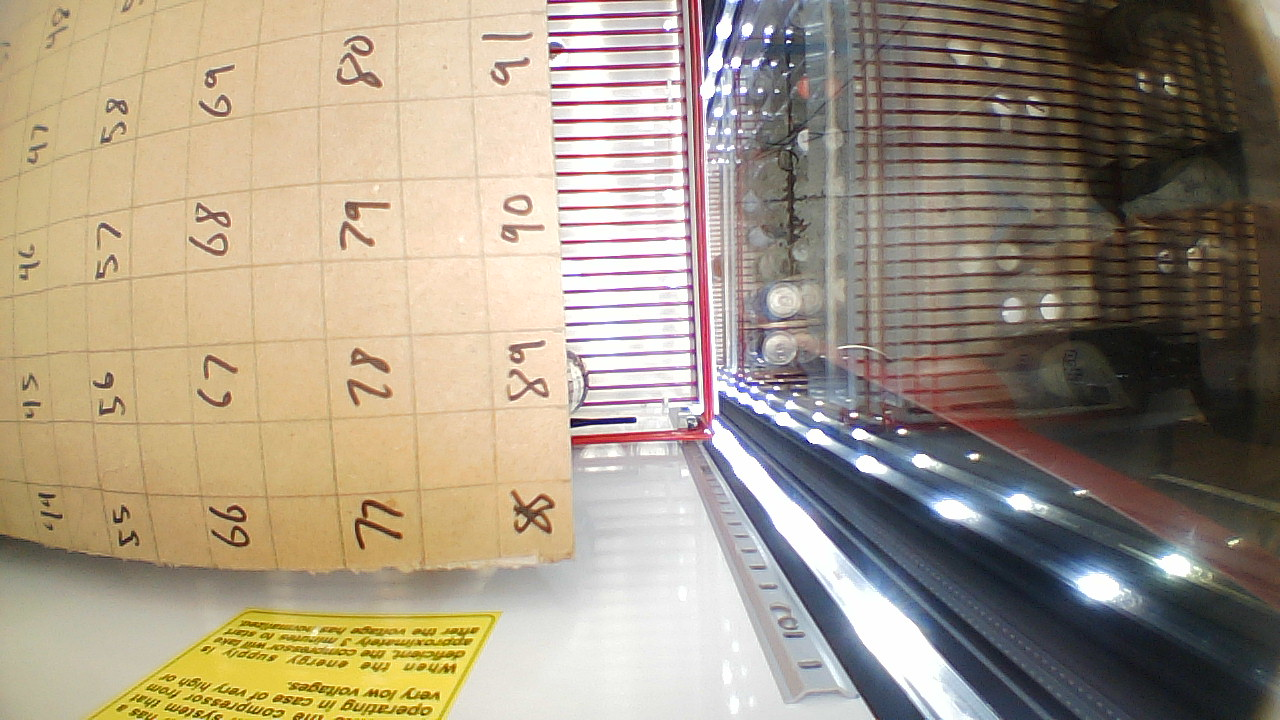 44 45 46 47 48
55 56 57 58
66 67 68 69
77 78 79 80
88 89 90 91
has a
system that
the compressor from
operating in case of very high or
very low voltages.
When the energy supply is
deficient, the compressor will take
approximately 3 minutes to start
after the voltage has normalized.